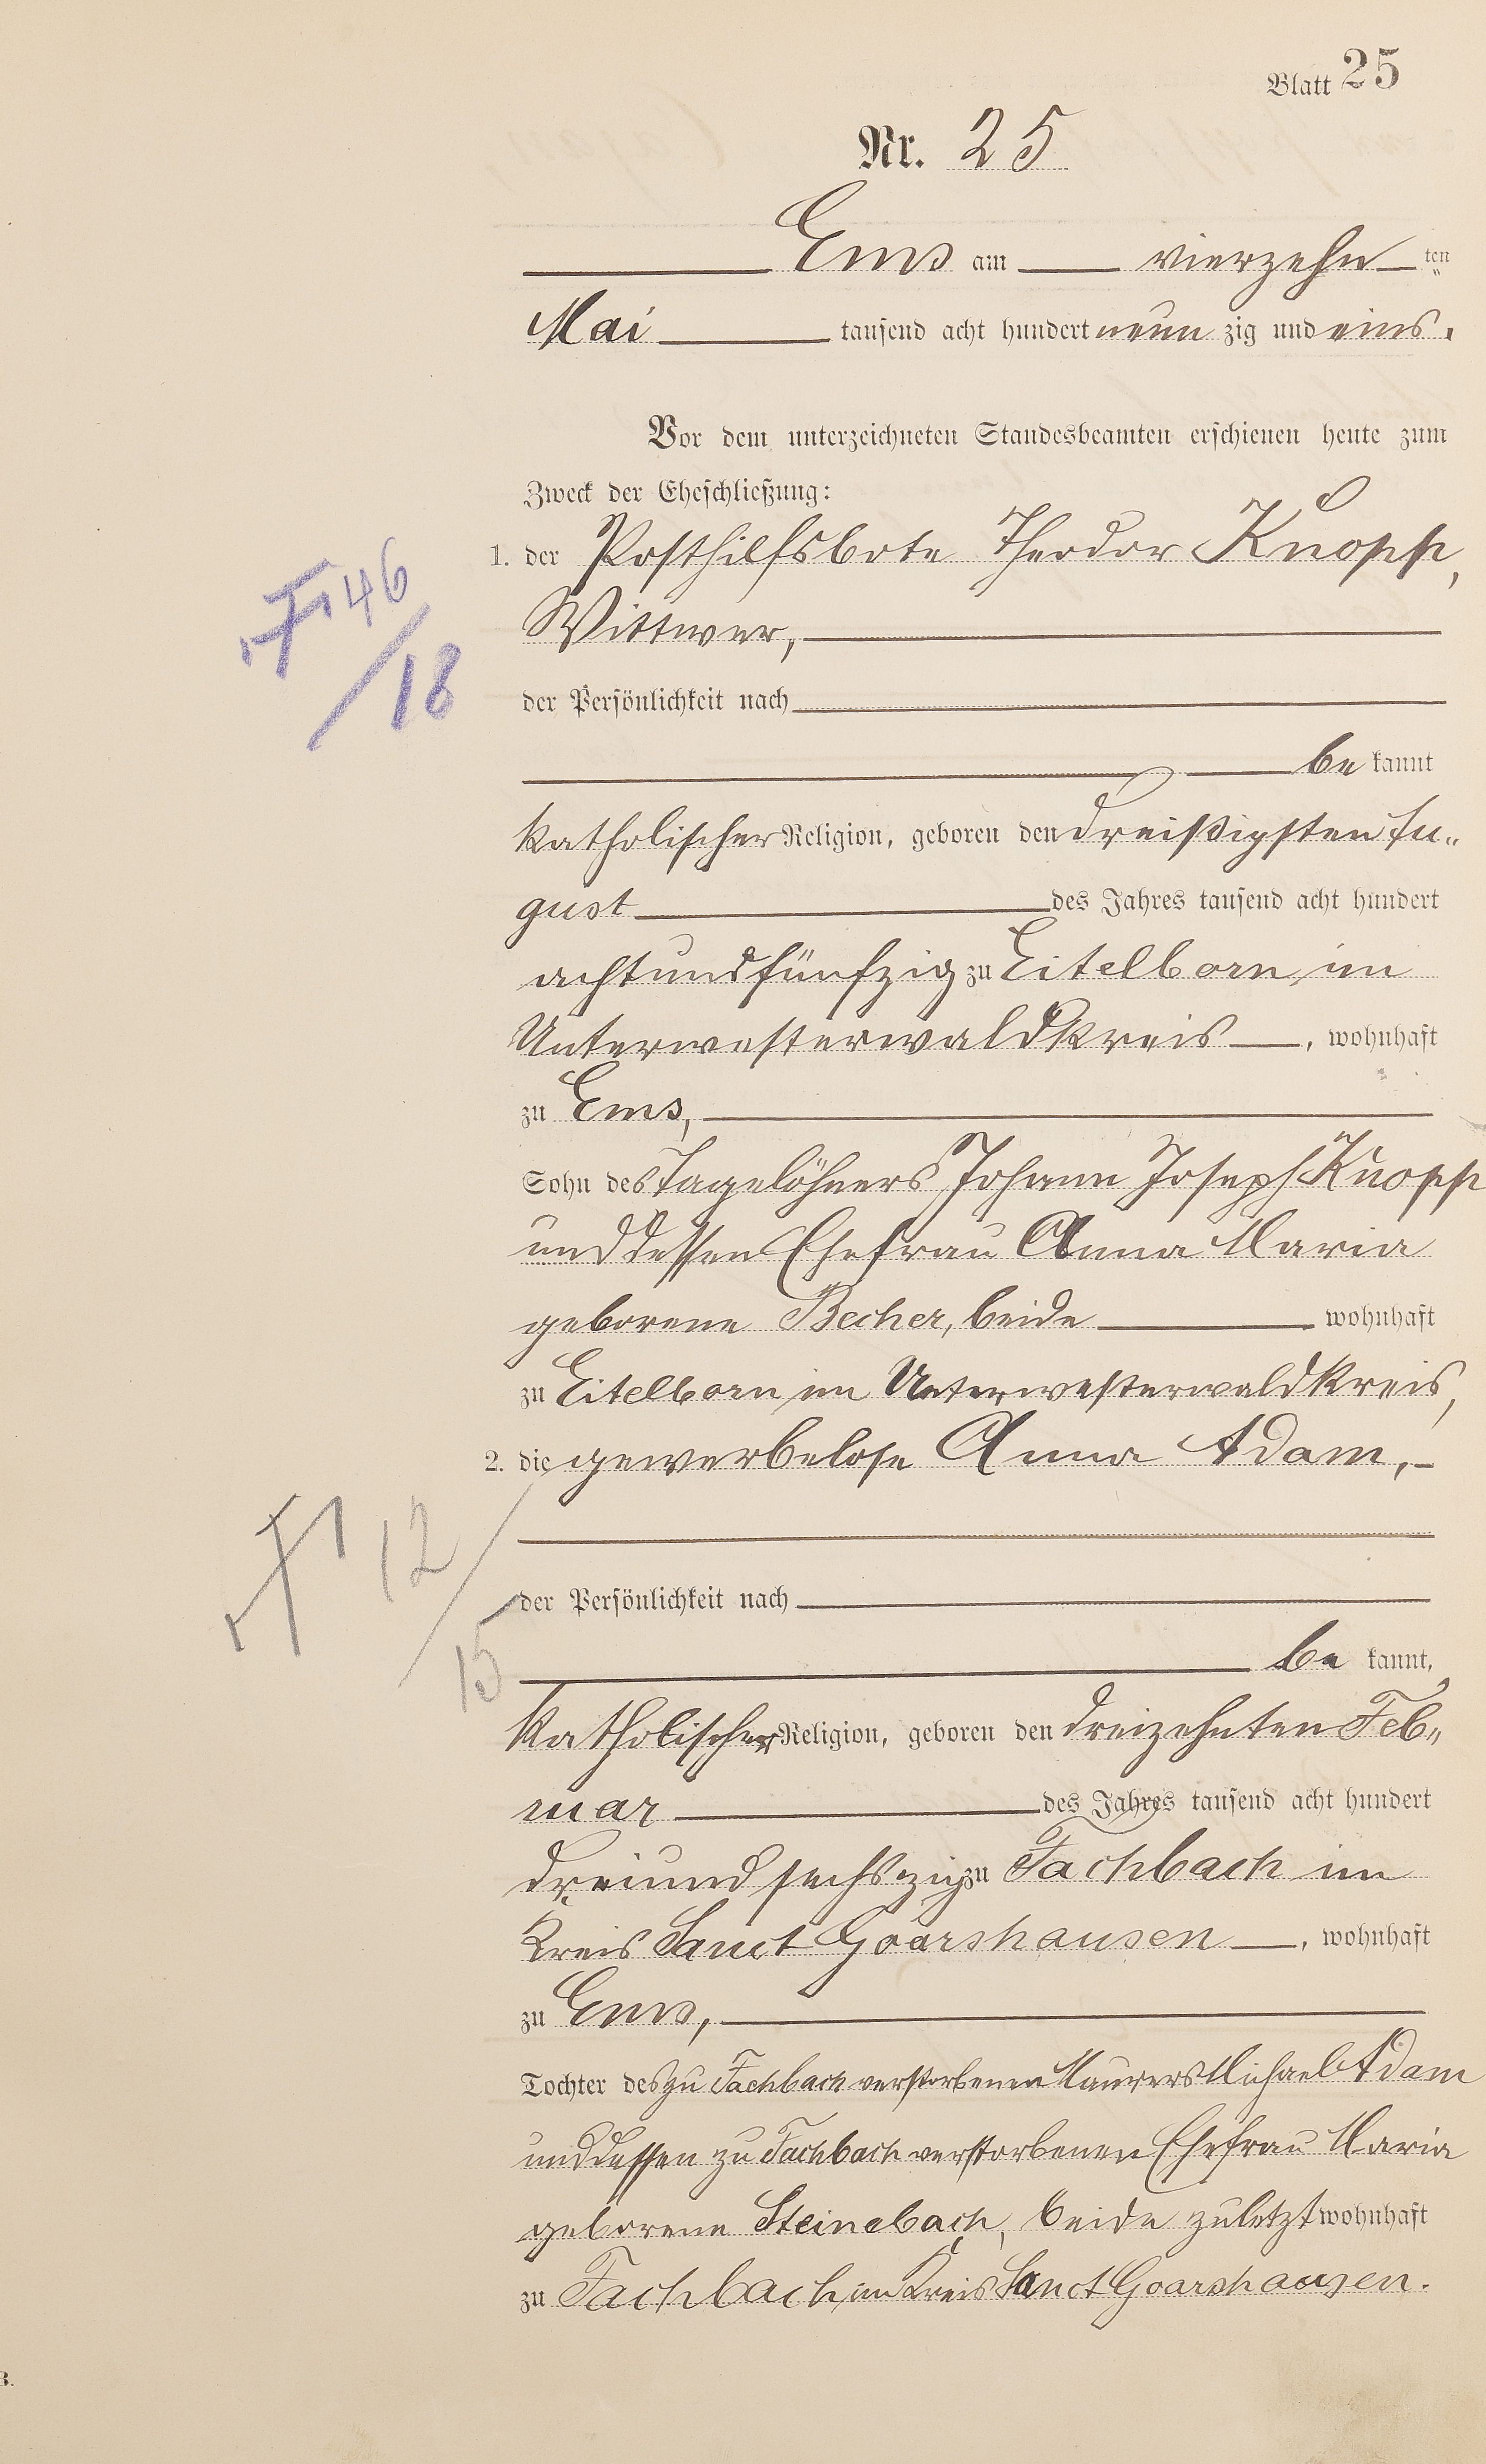 Blatt 25
Nr. 25
Ems am vierzehn ten
Mai tausend acht hundert neun zig und eins.
Vor dem unterzeichneten Standesbeamten erschienen heute zum
Zweck der Eheschließung:
1. der Posthilfsbote Theodor Knopp,
46
Wittwer,
/18
der Persönlichkeit nach
be kannt
katholischer Religion, geboren den dreißigsten Au„
gust des Jahres tausend acht hundert
achtundfünfzig zu Eitelborn im
Unterwesterwaldkreis, wohnhaft
zu Ems,
Sohn des Tagelöhners Johann Joseph Knopp
und dessen Ehefrau Anna Maria
geborene Becher, beide wohnhaft
zu Eitelborn im Unterwesterwaldkreis,
2. die gewerbelose Anna Adam,
12
der Persönlichkeit nach
/15
be kannt,
katholischer Religion, geboren den dreizehnten Feb„
ruar des Jahres tausend acht hundert
dreiundsechszig zu Fachbach im
Kreis Sanct Goarshausen, wohnhaft
zu Ems,
Tochter des zu Fachbach verstorbenen Maurers Michael Adam
und dessen zu Fachbach verstorbenen Ehefrau Maria
geborene Steinebach, beide zuletzt wohnhaft
zu Fachbach, im Kreis Sanct Goarshausen.
B.